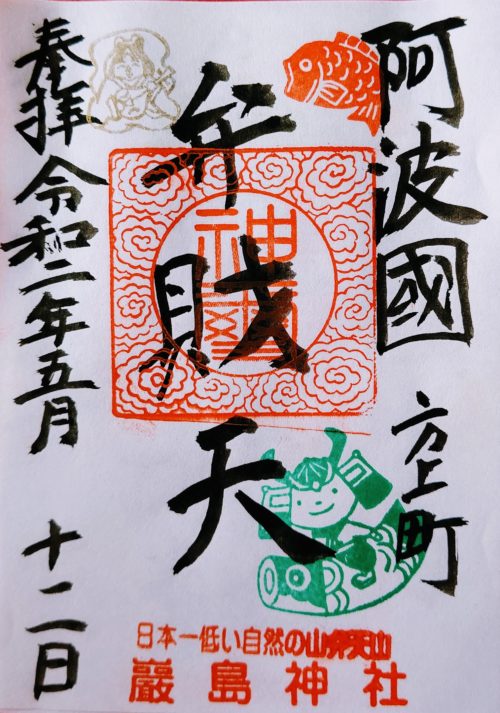 阿波國 方上町
弁財天
神璽
奉拝 令和二年五月 十二日
日本一低い自然の山弁天山
巌島神社